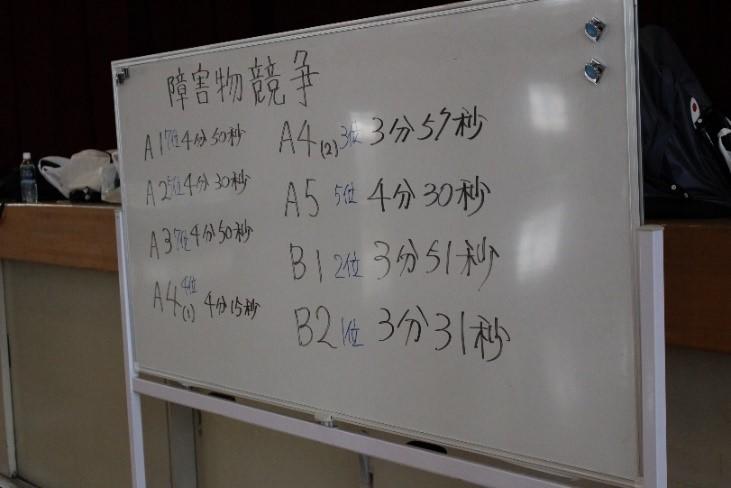 障害物競争
A1 7位 4分50秒
A2 5位 4分30秒
A3 7位 4分50秒
A4(1) 4位 4分15秒
A4(2) 3位 3分57秒
A5 5位 4分30秒
B1 2位 3分51秒
B2 1位 3分31秒